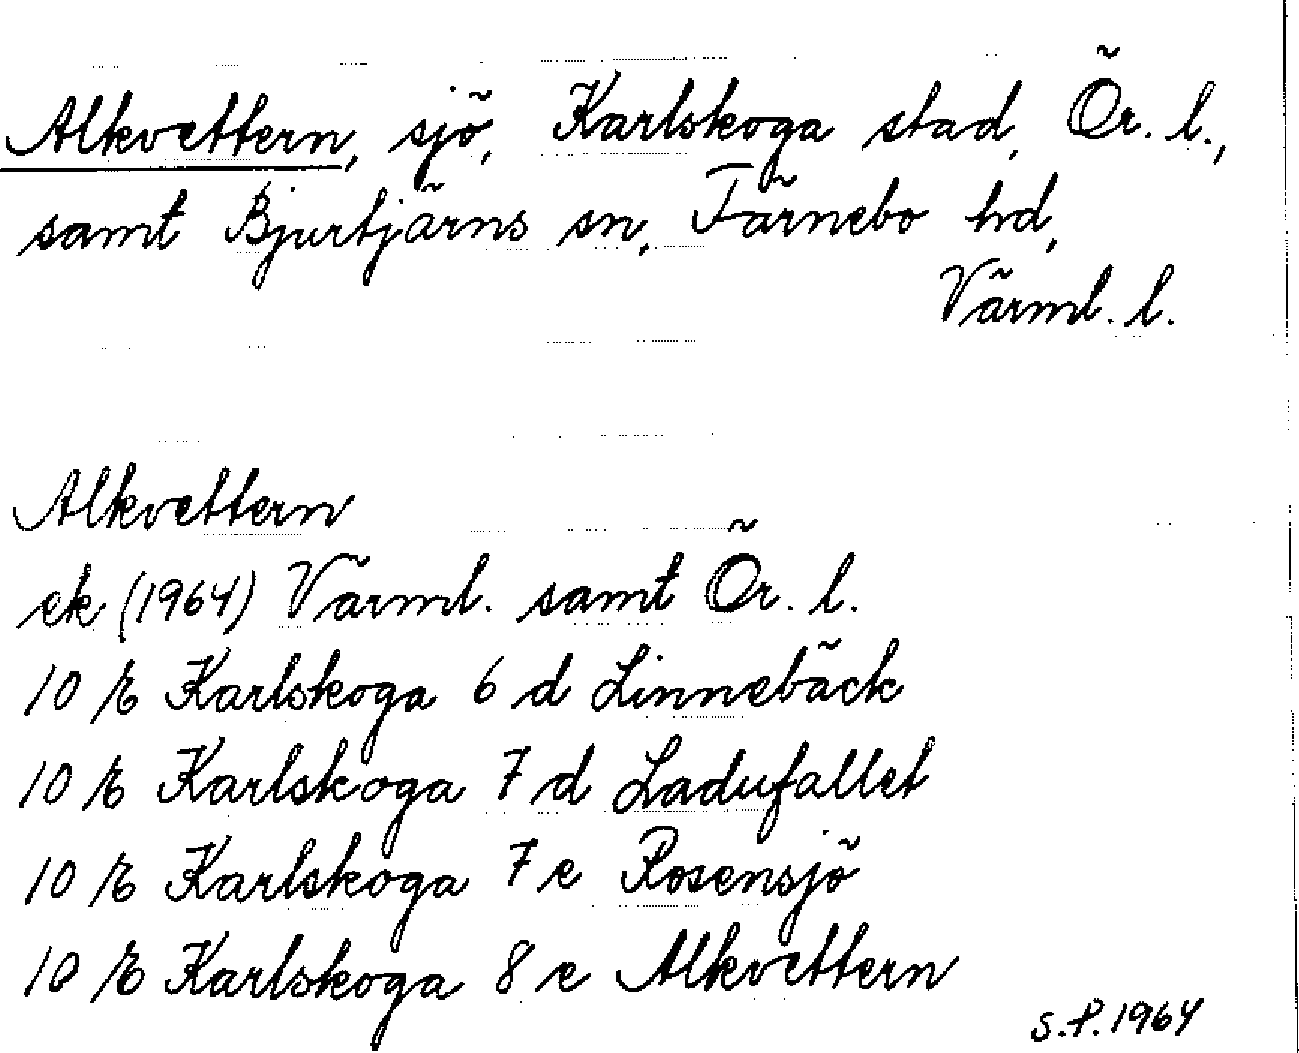 Alkvettern, sjö, Karlskoga stad, Ör. l.,
samt Bjurtjärns sn, Färnebo hd,
Värml. l.
Alkvettern
ek (1964) Värml. samt Ör. l.
10 E Karlskoga 6 d Linnebäck
10 E Karlskoga 7 d Ladufallet
10 E Karlskoga 7 e Rosensjö
10 E Karlskoga 8 e Alkvettern
S.P. 1964